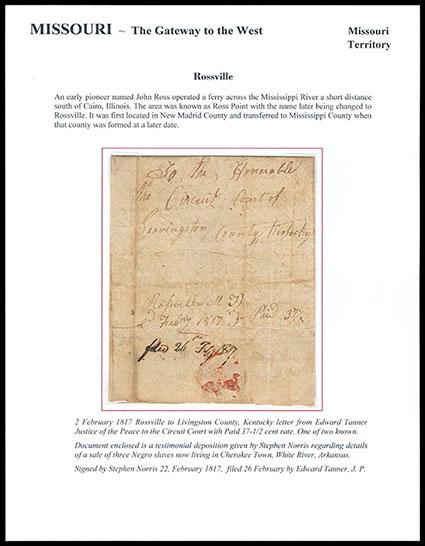 MISSOURI ~ The Gateway to the West
Missouri
Territory
Rossville
An early pioneer named John Ross operated a ferry across the Mississippi River a short distance
south of Cairo, Illinois. The area was known as Ross Point with the name later being changed to
Rossville. It was first located in New Madrid County and transferred to Mississippi County when
that county was formed at a later date.
To the Honorable
the Circuit Court of
Leavingston County Kentucky
Rossville M T
2d Feby 1817 Paid 37½
filed 26 Feb
2 February 1817 Rossville to Livingston County, Kentucky letter from Edward Tanner
Justice of the Peace to the Circuit Court with Paid 37-1/2 cent rate. One of two known.
Document enclosed is a testimonial deposition given by Stephen Norris regarding details
of a sale of three Negro slaves now living in Cherokee Town, White River, Arkansas.
Signed by Stephen Norris 22, February 1817, filed 26 February by Edward Tanner, J. P.